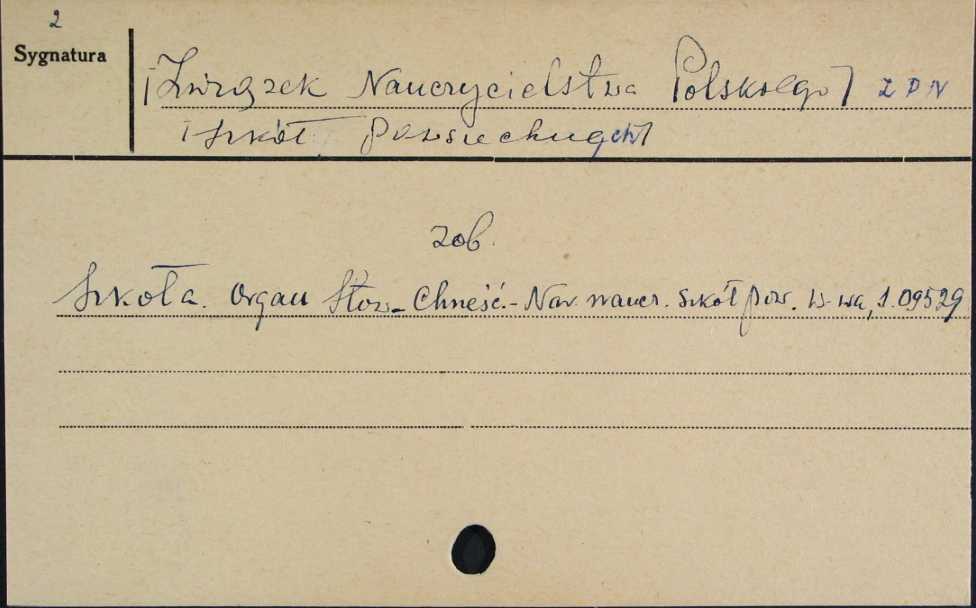 2
Sygnatura
[Związek Nauczycielstwa Polskiego] Z P N
[Szkół Powszechnych]
zob.
Szkoła. Organ Stow. Chrześć.-Nar. naucz. szkół pow. W-wa, 1.09529